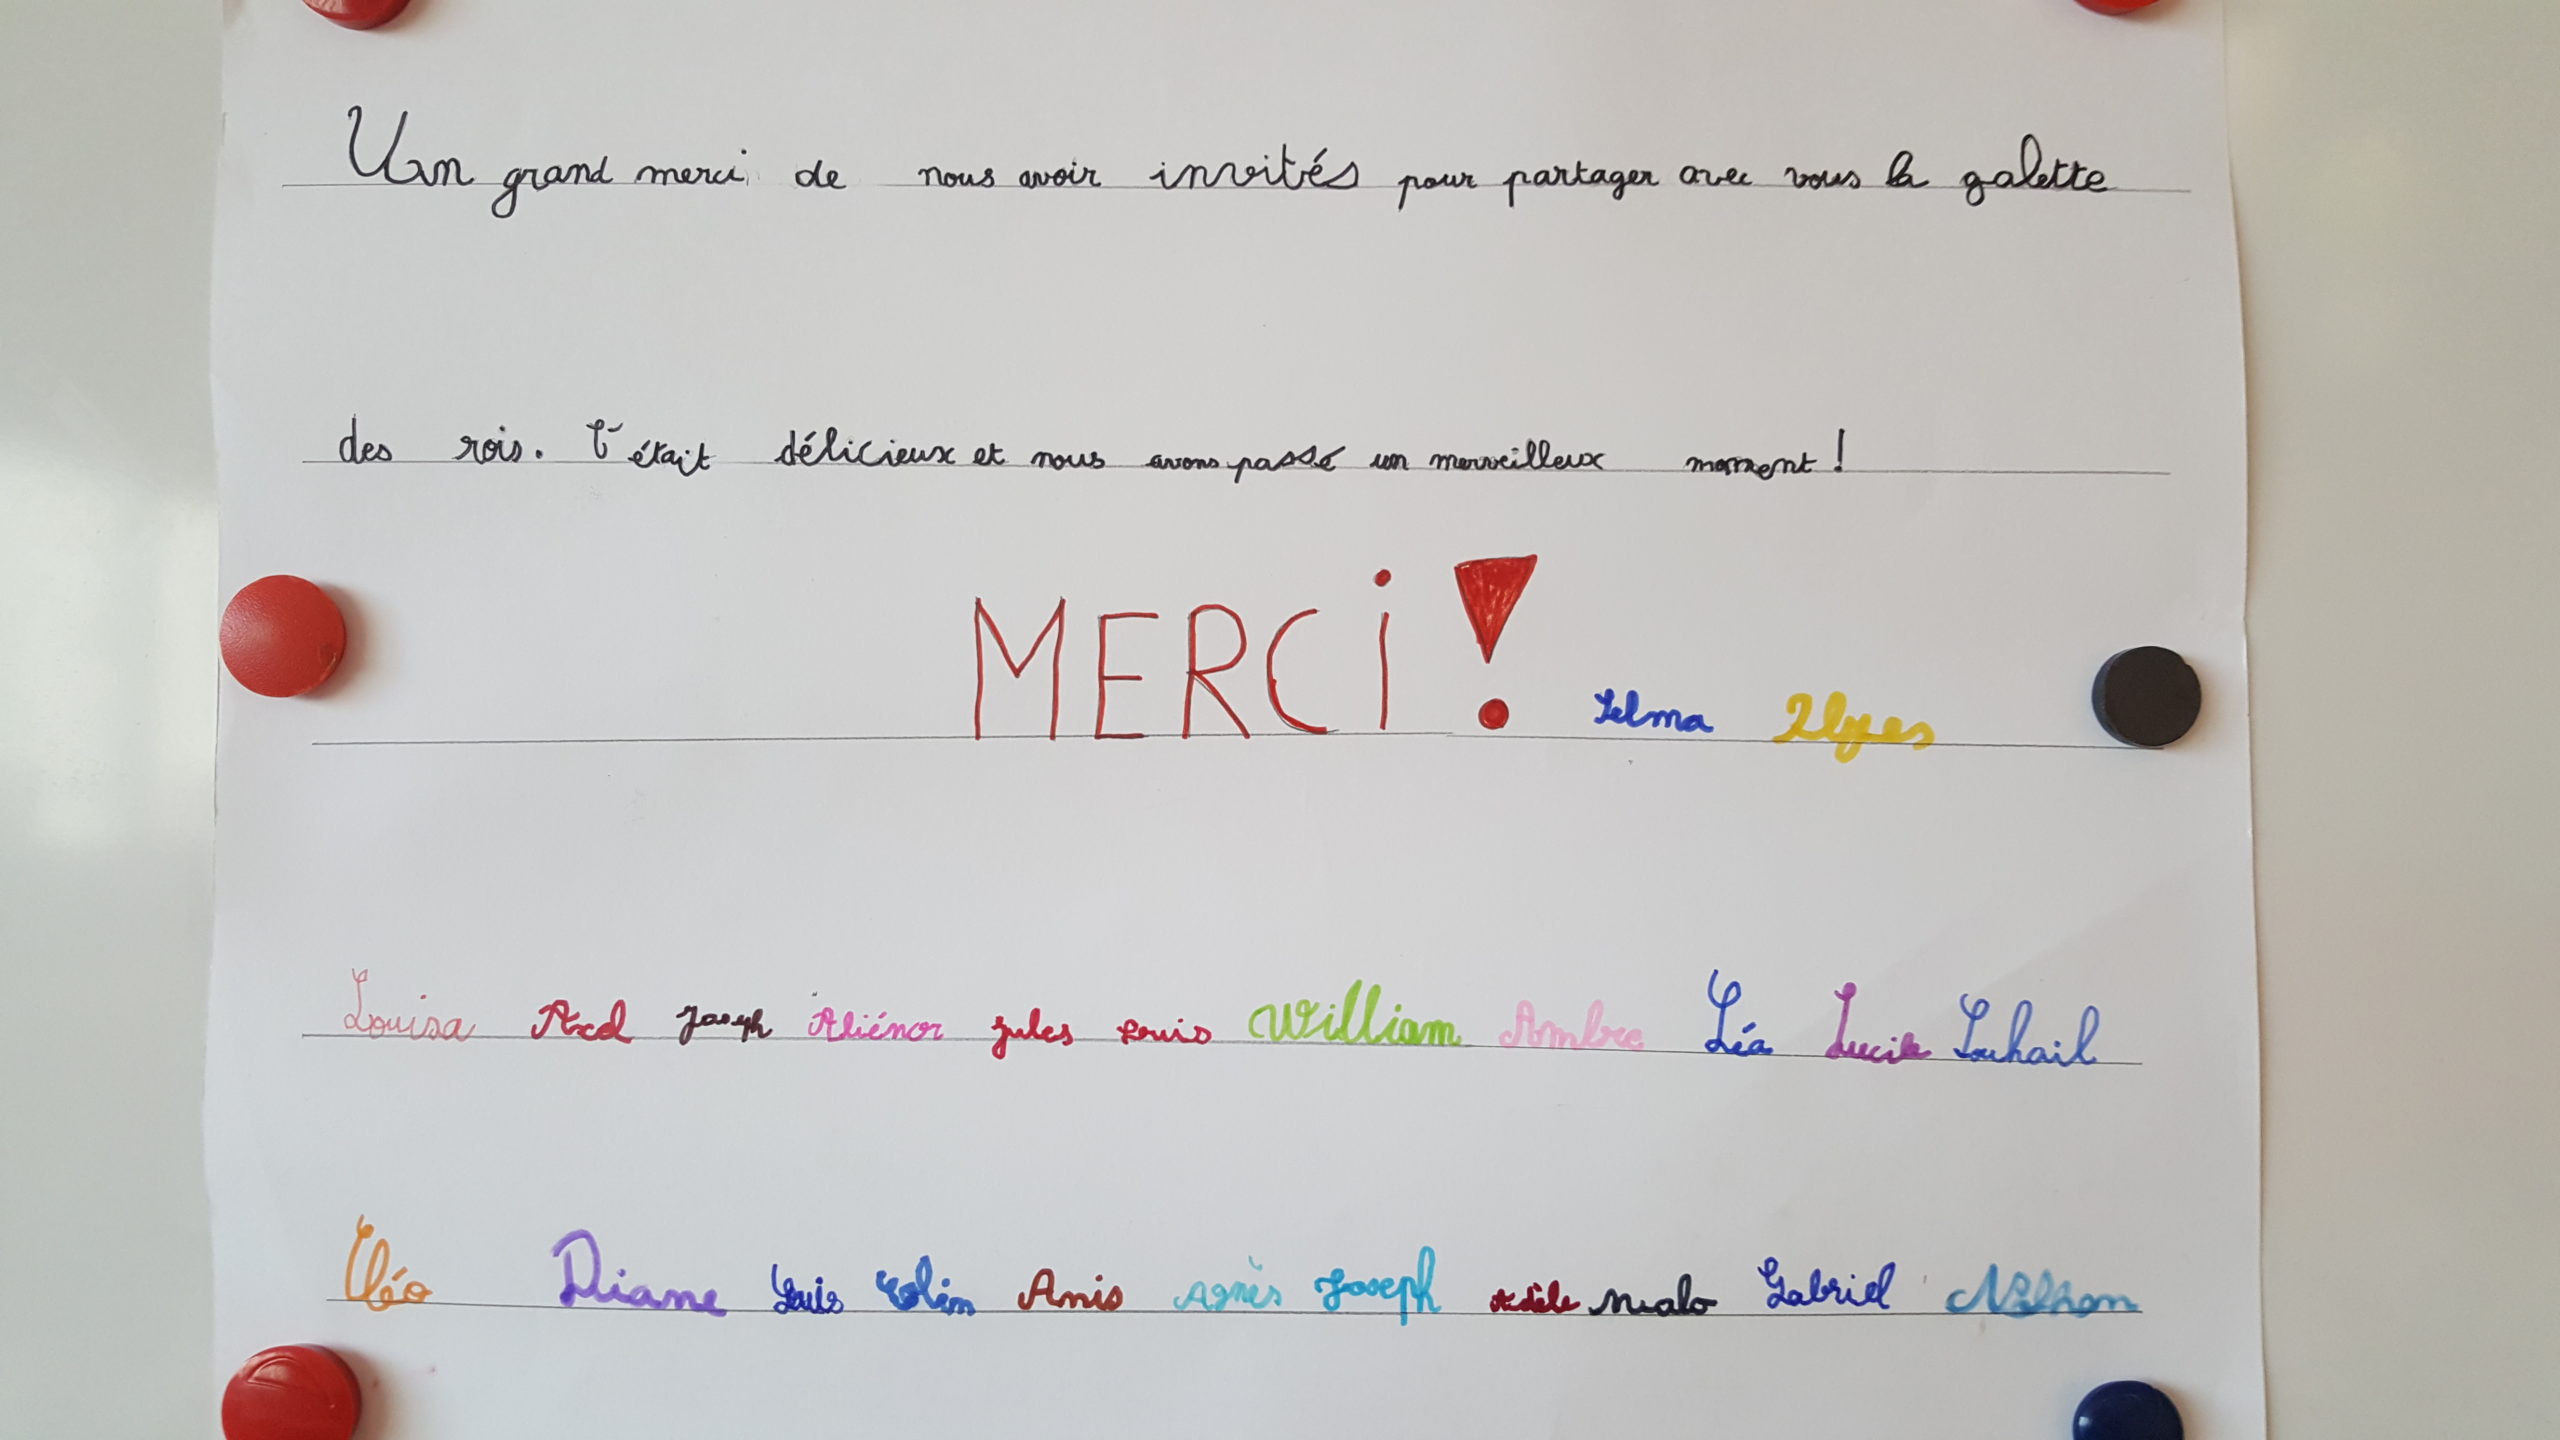 Un grand merci de nous avoir invités pour partager avec vous la galette
des rois. C'était délicieux et nous avons passé un merveilleux moment !
MERCi ! Selma Ilyes
Louisa Axel Joseph Aliénor Jules Louis William Ambre Léa Lucile Souhail
Cléo Diane Louis Colin Anis Agnès Joseph Adèle Malo Gabriel